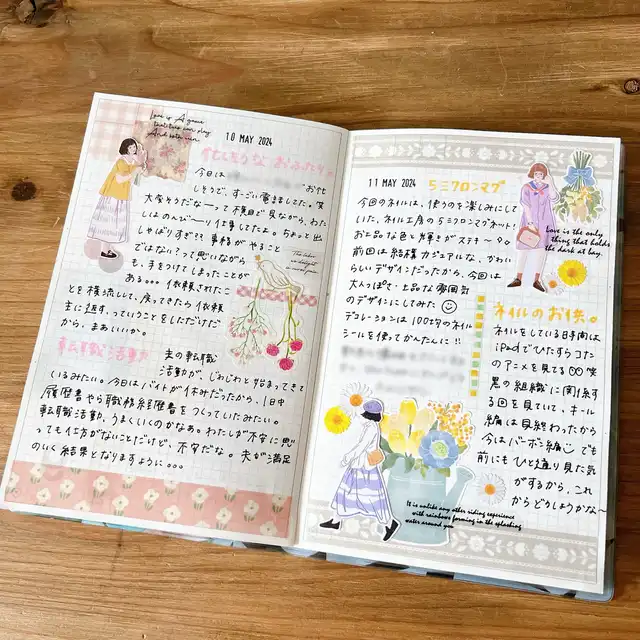 Love is A game
that two can play
And both win.
10 MAY 2024
忙しそうな おふたり。
今日は
お忙
しそうで、すーごい電話してました。笑
大変そうだな〜って横目で見ながら、わた
しはのんびーり仕事してたよ。ちょっと出
しゃばりすぎ??事務がやること
ではない?って思いながら
も、手をつけてしまったことが
ある。。。依頼されたこ
とを横流しして、戻ってきたら依頼
主に返す、っていうことをしただけだ
から、まあいいか。
転職活動
夫の転職
活動が、じわじわと始まってきて
いるみたい。今日はバイトが休みだったから、1日中
履歴書やら職務経歴書をつくっていたみたい。
転職活動、うまくいくのかなあ。わたしが不安に思
っても仕方がないことだけど、不安だな。夫が満足
のいく結果となりますように。。。
11 MAY 2024
5ミクロンマグ
今回のネイルは、使うのを楽しみにして
いた、ネイル工房の5ミクロンマグネット!
お上品な色と輝きがステキ〜
前回は結構カジュアルな、かわい
らしいデザインだったから、今回は
大人っぽで、上品な雰囲気
のデザインにしてみた
デコレーションは100均のネイル
シールを使ってかんたんに!!
Love is the only
thing that holds
the dark at bay.
ネイルのお供。
ネイルをしている時間は
iPadでひたすらコナ
ンのアニメを見てる 笑
黒の組織に関係す
る回を見ていて、キール
編は見終わったから
今はバーボン編 でも
前にもひと通り見た気
がするから、これ
からどうしようかな〜
It is unlike any other riding experience
with rainbows forming in the splashing
water around you